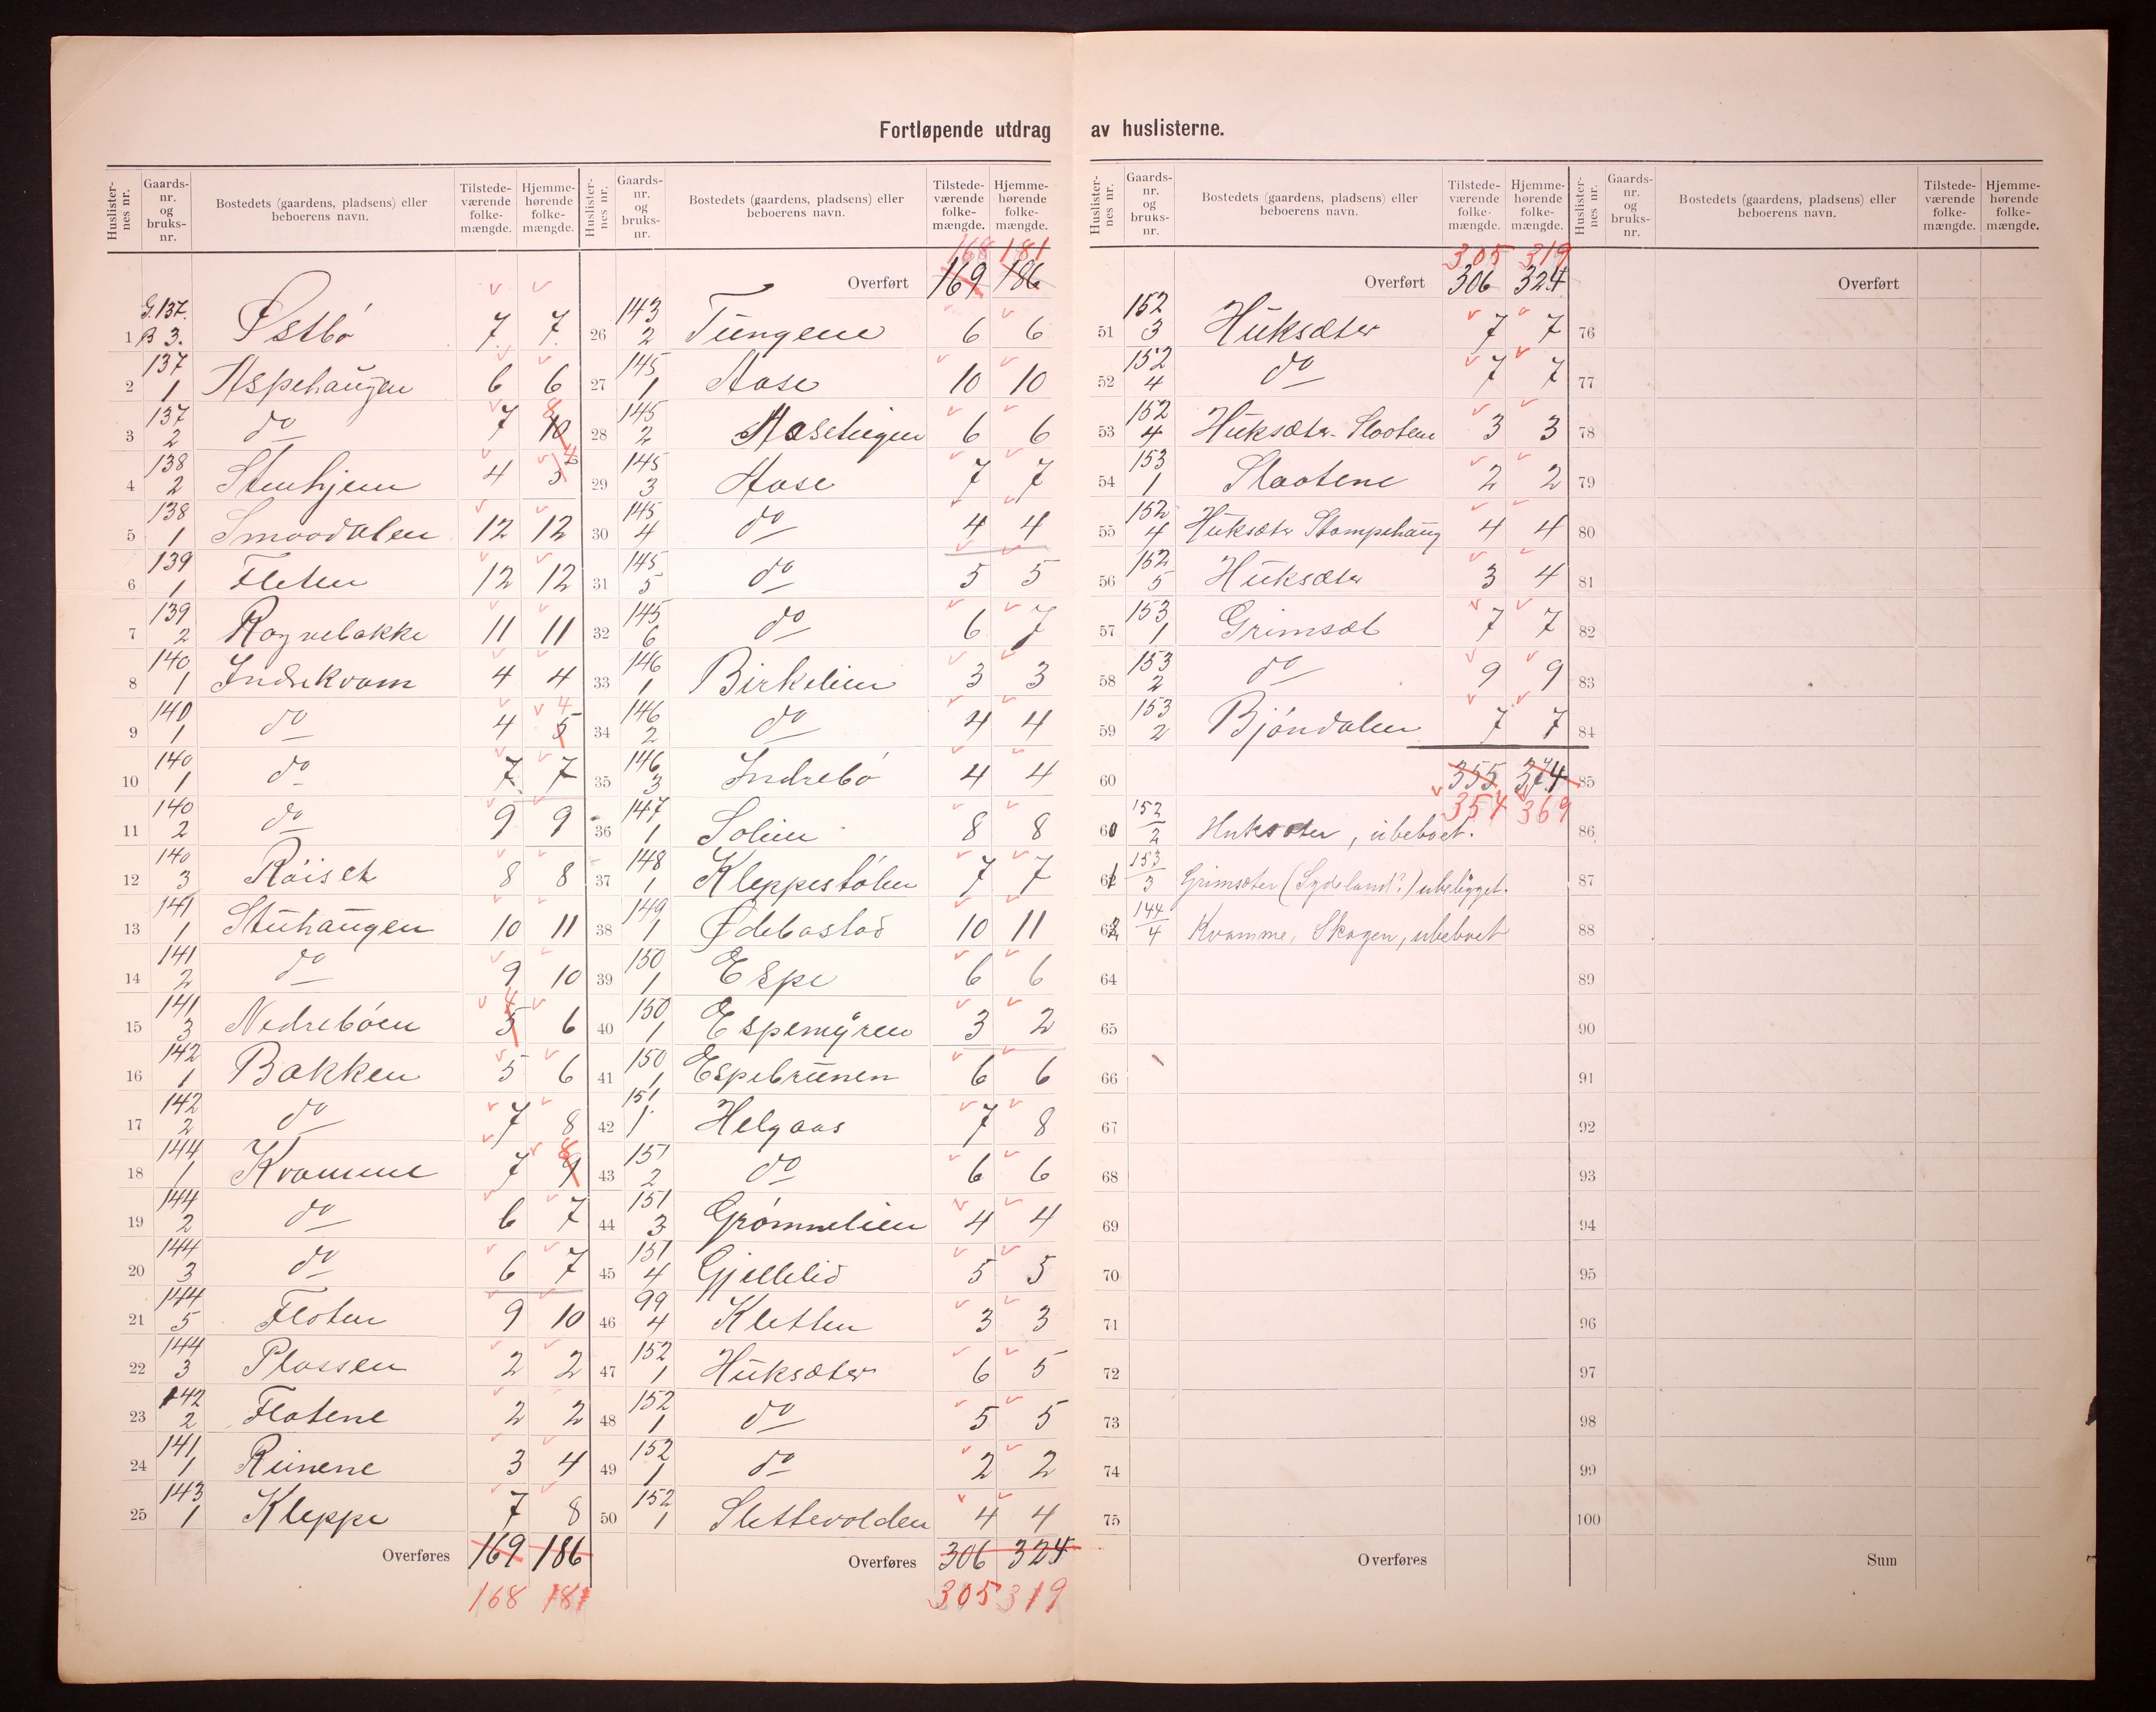 Fortløpende utdrag av huslisterne.
Huslister-nes nr. | Gaards-nr. og bruks-nr. | Bostedets (gaardens, pladsens) eller beboerens navn. | Tilstede-værende folke-mængde. | Hjemme-hørende folke-mængde.
1 G. 137. B 3. Østbø 7. 7.
2 137 1 Aspehaugen 6 6
3 137 2 do 7 10 8
4 138 2 Stenhjem 4 3 4
5 138 1 Smaadalen 12 12
6 139 1 Fleten 12 12
7 139 2 Rognebakke 11 11
8 140 1 Indrekvam 4 4
9 140 1 do 4 5 4
10 140 1 do 7 7
11 140 2 do 9 9
12 140 3 Røiset 8 8
13 141 1 Stuhaugen 10 11
14 141 2 do 9 10
15 141 3 Nedrebøen 5 4 6
16 142 1 Bakken 5 6
17 142 2 do 7 8
18 144 1 Kvamme 7 9 8
19 144 2 do 6 7
20 144 3 do 6 7
21 144 5 Floten 9 10
22 144 3 Plassen 2 2
23 142 2 Flatene 2 2
24 141 1 Reinene 3 4
25 143 1 Kleppe 7 8
Overføres 169 186
168 181
Huslister-nes nr. | Gaards-nr. og bruks-nr. | Bostedets (gaardens, pladsens) eller beboerens navn. | Tilstede-værende folke-mængde. | Hjemme-hørende folke-mængde.
168 181
Overført 169 186
26 143 2 Tungene 6 6
27 145 1 Aase 10 10
28 145 2 Aaseteigen 6 6
29 145 3 Aase 7 7
30 145 4 do 4 4
31 145 5 do 5 5
32 145 6 do 6 7
33 146 1 Birkelien 3 3
34 146 2 do 4 4
35 146 3 Indrebø 4 4
36 147 1 Solien 8 8
37 148 1 Kleppestølen 7 7
38 149 1 Ødebastad 10 11
39 150 1 Espe 6 6
40 150 1 Espemyren 3 2
41 150 1 Espebrunen 6 6
42 151 1 Helgaas 7 8
43 151 2 do 6 6
44 151 3 Grømmelien 4 4
45 151 4 Gjellelid 5 5
46 99 4 Kletten 3 3
47 152 1 Huksæter 6 5
48 152 1 do 5 5
49 152 1 do 2 2
50 152 1 Slettevolden 4 4
Overføres 306 324
305 319
Huslister-nes nr. | Gaards-nr. og bruks-nr. | Bostedets (gaardens, pladsens) eller beboerens navn. | Tilstede-værende folke-mængde. | Hjemme-hørende folke-mængde.
305 319
Overført 306 324
51 152 3 Huksæter 7 7
52 152 4 do 7 7
53 152 4 Huksæter-Slaatene 3 3
54 153 1 Slaatene 2 2
55 152 4 Huksæter Stampehaug 4 4
56 152 5 Huksæter 3 4
57 153 1 Grimsæt 7 7
58 153 2 do 9 9
59 153 2 Bjøndalen 7 7
60 355 374
354 369
60 152/2 Huksæter, ubeboet.
61 153/3 Grimsæter (Sydeland?) ubebygget.
62 144/4 Kvamme, Skogen, ubeboet
64
65
66
67
68
69
70
71
72
73
74
75
Overføres
Huslister-nes nr. | Gaards-nr. og bruks-nr. | Bostedets (gaardens, pladsens) eller beboerens navn. | Tilstede-værende folke-mængde. | Hjemme-hørende folke-mængde.
Overført
76
77
78
79
80
81
82
83
84
85
86
87
88
89
90
91
92
93
94
95
96
97
98
99
100
Sum